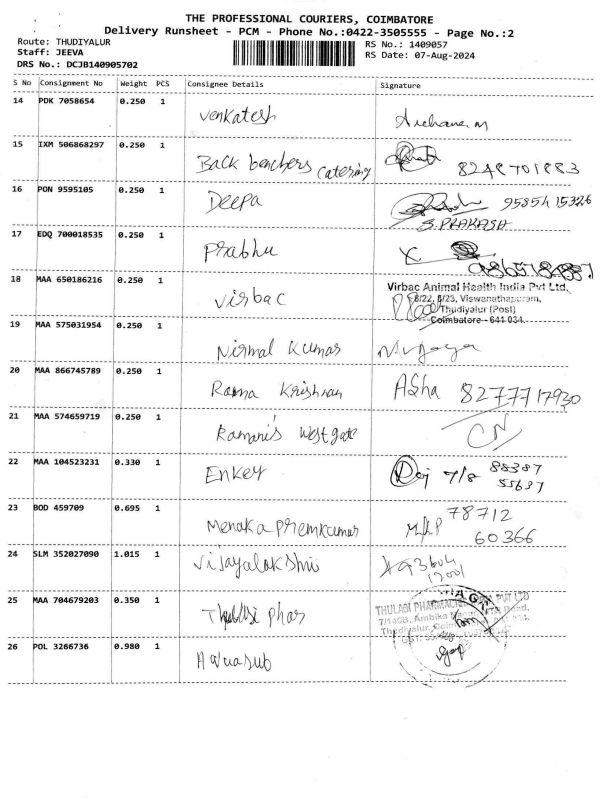 THE PROFESSIONAL COURIERS, COIMBATORE
Delivery Runsheet - PCM - Phone No.:0422-3505555 - Page No.:2
Route: THUDIYALUR RS No.: 1409057
Staff: JEEVA RS Date: 07-Aug-2024
DRS No.: DCJB140905702
S No Consignment No Weight PCS Consignee Details Signature
14 PDK 7058654 0.250 1 Venkatesh Archana.M
15 IXM 506868297 0.250 1 Back benchers catering
16 PON 9595105 0.250 1 Deepa 95854 15326
S.PRAKASH
17 EDQ 700018535 0.250 1 Prabhu
18 MAA 650186216 0.250 1 Virbac Virbac Animal Health India Pvt Ltd.
8/22, 8/23, Viswanathapuram,
Thudiyalur (Post)
Coimbatore - 641 034.
19 MAA 575031954 0.250 1 Nirmal Kumar
20 MAA 866745789 0.250 1 Rama Krishnan Asha 8277717930
21 MAA 574659719 0.250 1 Ramani's Westgate CN
22 MAA 104523231 0.330 1 Enkey 7/8 88387
55637
23 BOD 459709 0.695 1 Menaka Premkumar 78712
60366
24 SLM 352027090 1.015 1 Vijayalakshmi
25 MAA 704679203 0.350 1 Thulasi phar THULASI PHARMACIES INDIA PVT LTD
26 POL 3266736 0.980 1 Aquasub